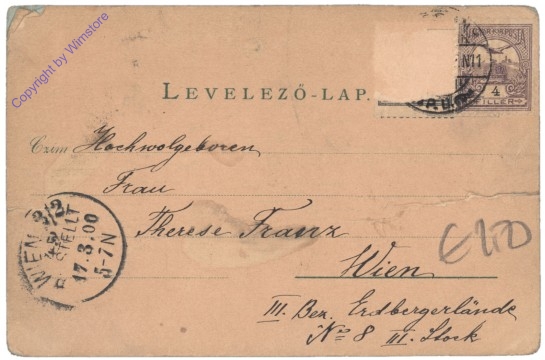 Copyright by Wimstore
LEVELEZŐ-LAP.
4
FILLER
Czím Hochwolgeboren
Frau
Therese Franz
Wien
III. Bez. Erdbergerlände
No 8 III. Stock
WIEN 3/2
BESTELLT
17.3.00
5-7N